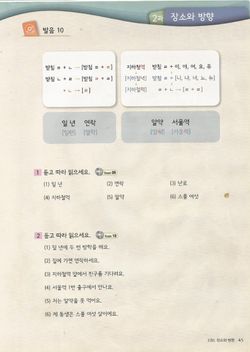 2과 장소와 방향
발음 10
받침 ㄴ + ㄹ → [받침 ㄹ + ㄹ]
받침 ㄹ + ㄴ → [받침 ㄹ + ㄹ]
지하철역 받침 ㄹ + 이, 야, 여, 요, 유
[지하철녁] 받침 ㄹ + [니, 냐, 녀, 뇨, 뉴]
[지하철력]
일 년 연락
[일련] [열락]
알약 서울역
[알략] [서울력]
1 듣고 따라 읽으세요.
(1) 일 년 (2) 연락 (3) 난로
(4) 지하철역 (5) 알약 (6) 스물 여섯
2 듣고 따라 읽으세요.
(1) 일 년에 두 번 방학을 해요.
(2) 집에 가면 연락하세요.
(3) 지하철역 앞에서 친구를 기다려요.
(4) 서울역 1번 출구에서 만나요.
(5) 저는 알약을 못 먹어요.
(6) 제 동생은 스물 여섯 살이에요.
2과. 장소와 방향 45